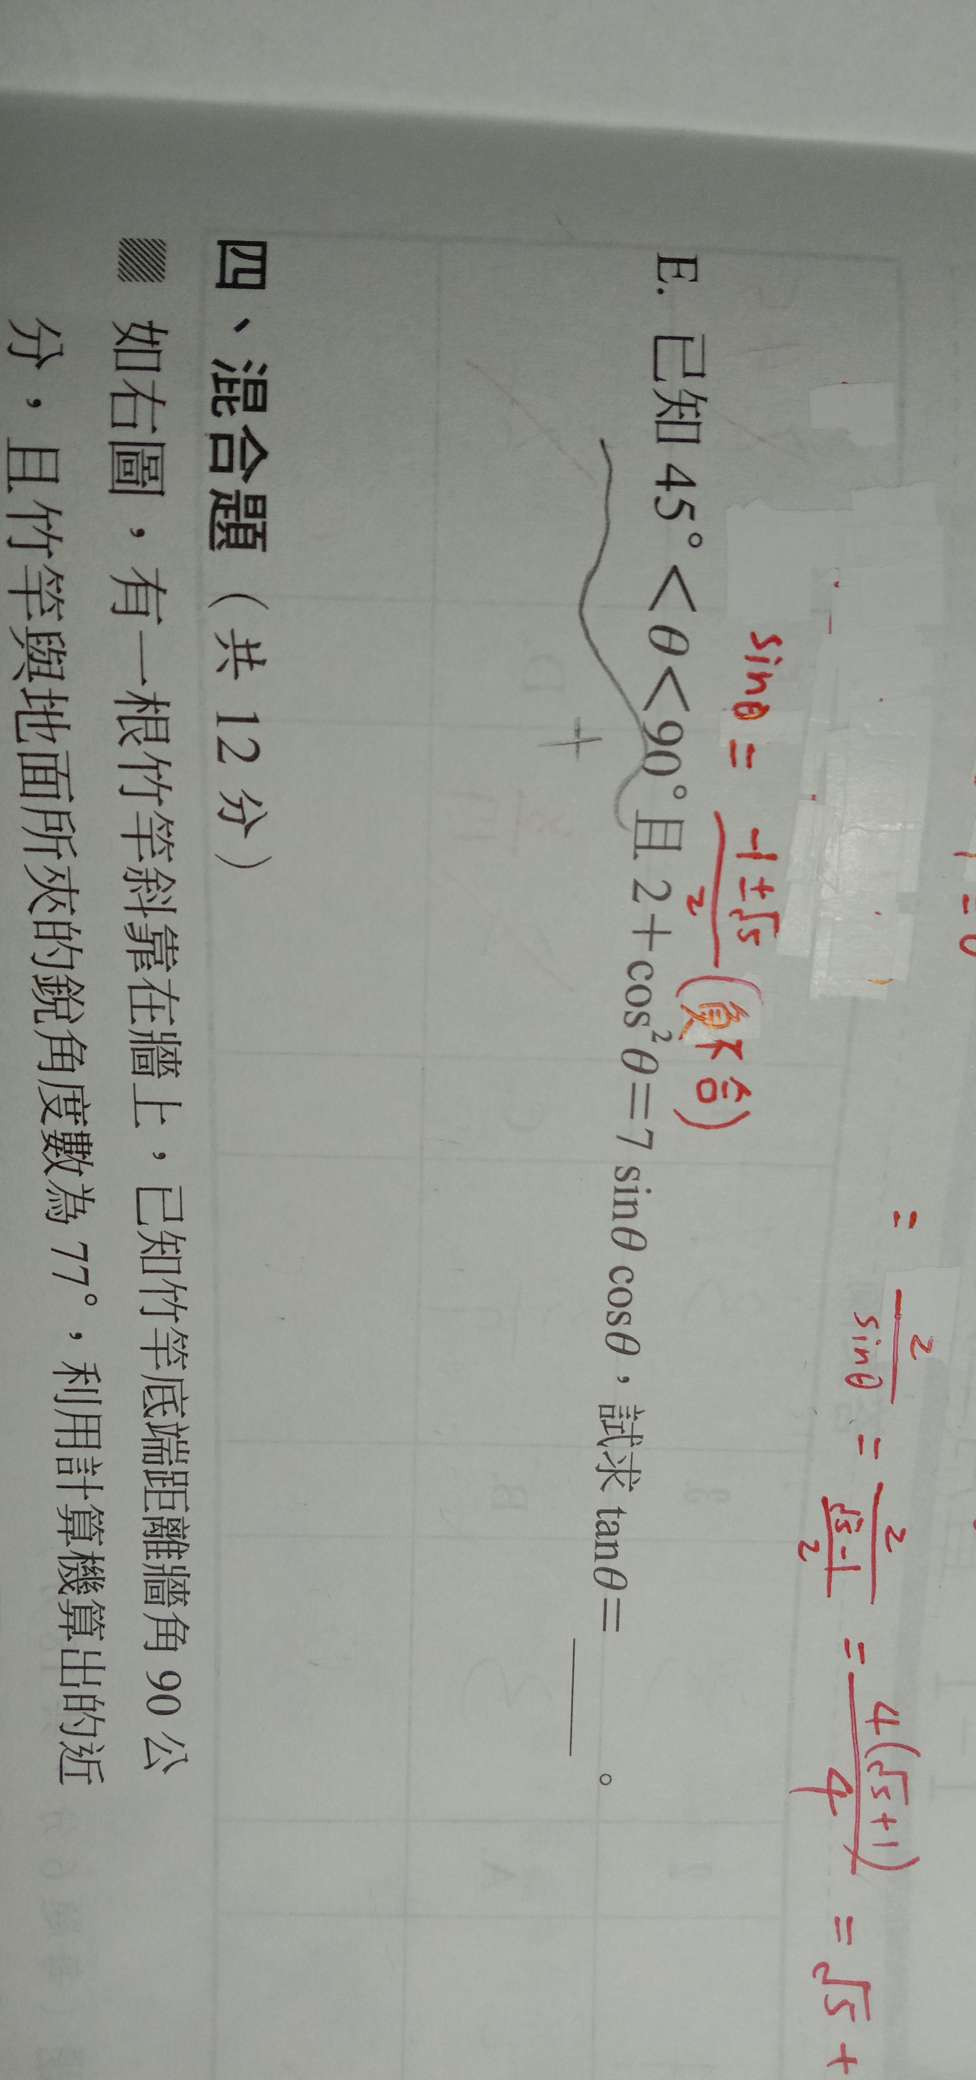 = 2/sinθ = 2/((√5-1)/2) = 4(√5+1)/4 = √5+
sinθ = (-1±√5)/2 (負不合)
E. 已知 45°<θ<90°且 2+cos²θ=7 sinθ cosθ，試求 tanθ=______。
四、混合題（共 12 分）
如右圖，有一根竹竿斜靠在牆上，已知竹竿底端距離牆角 90 公
分，且竹竿與地面所夾的銳角度數為 77°，利用計算機算出的近